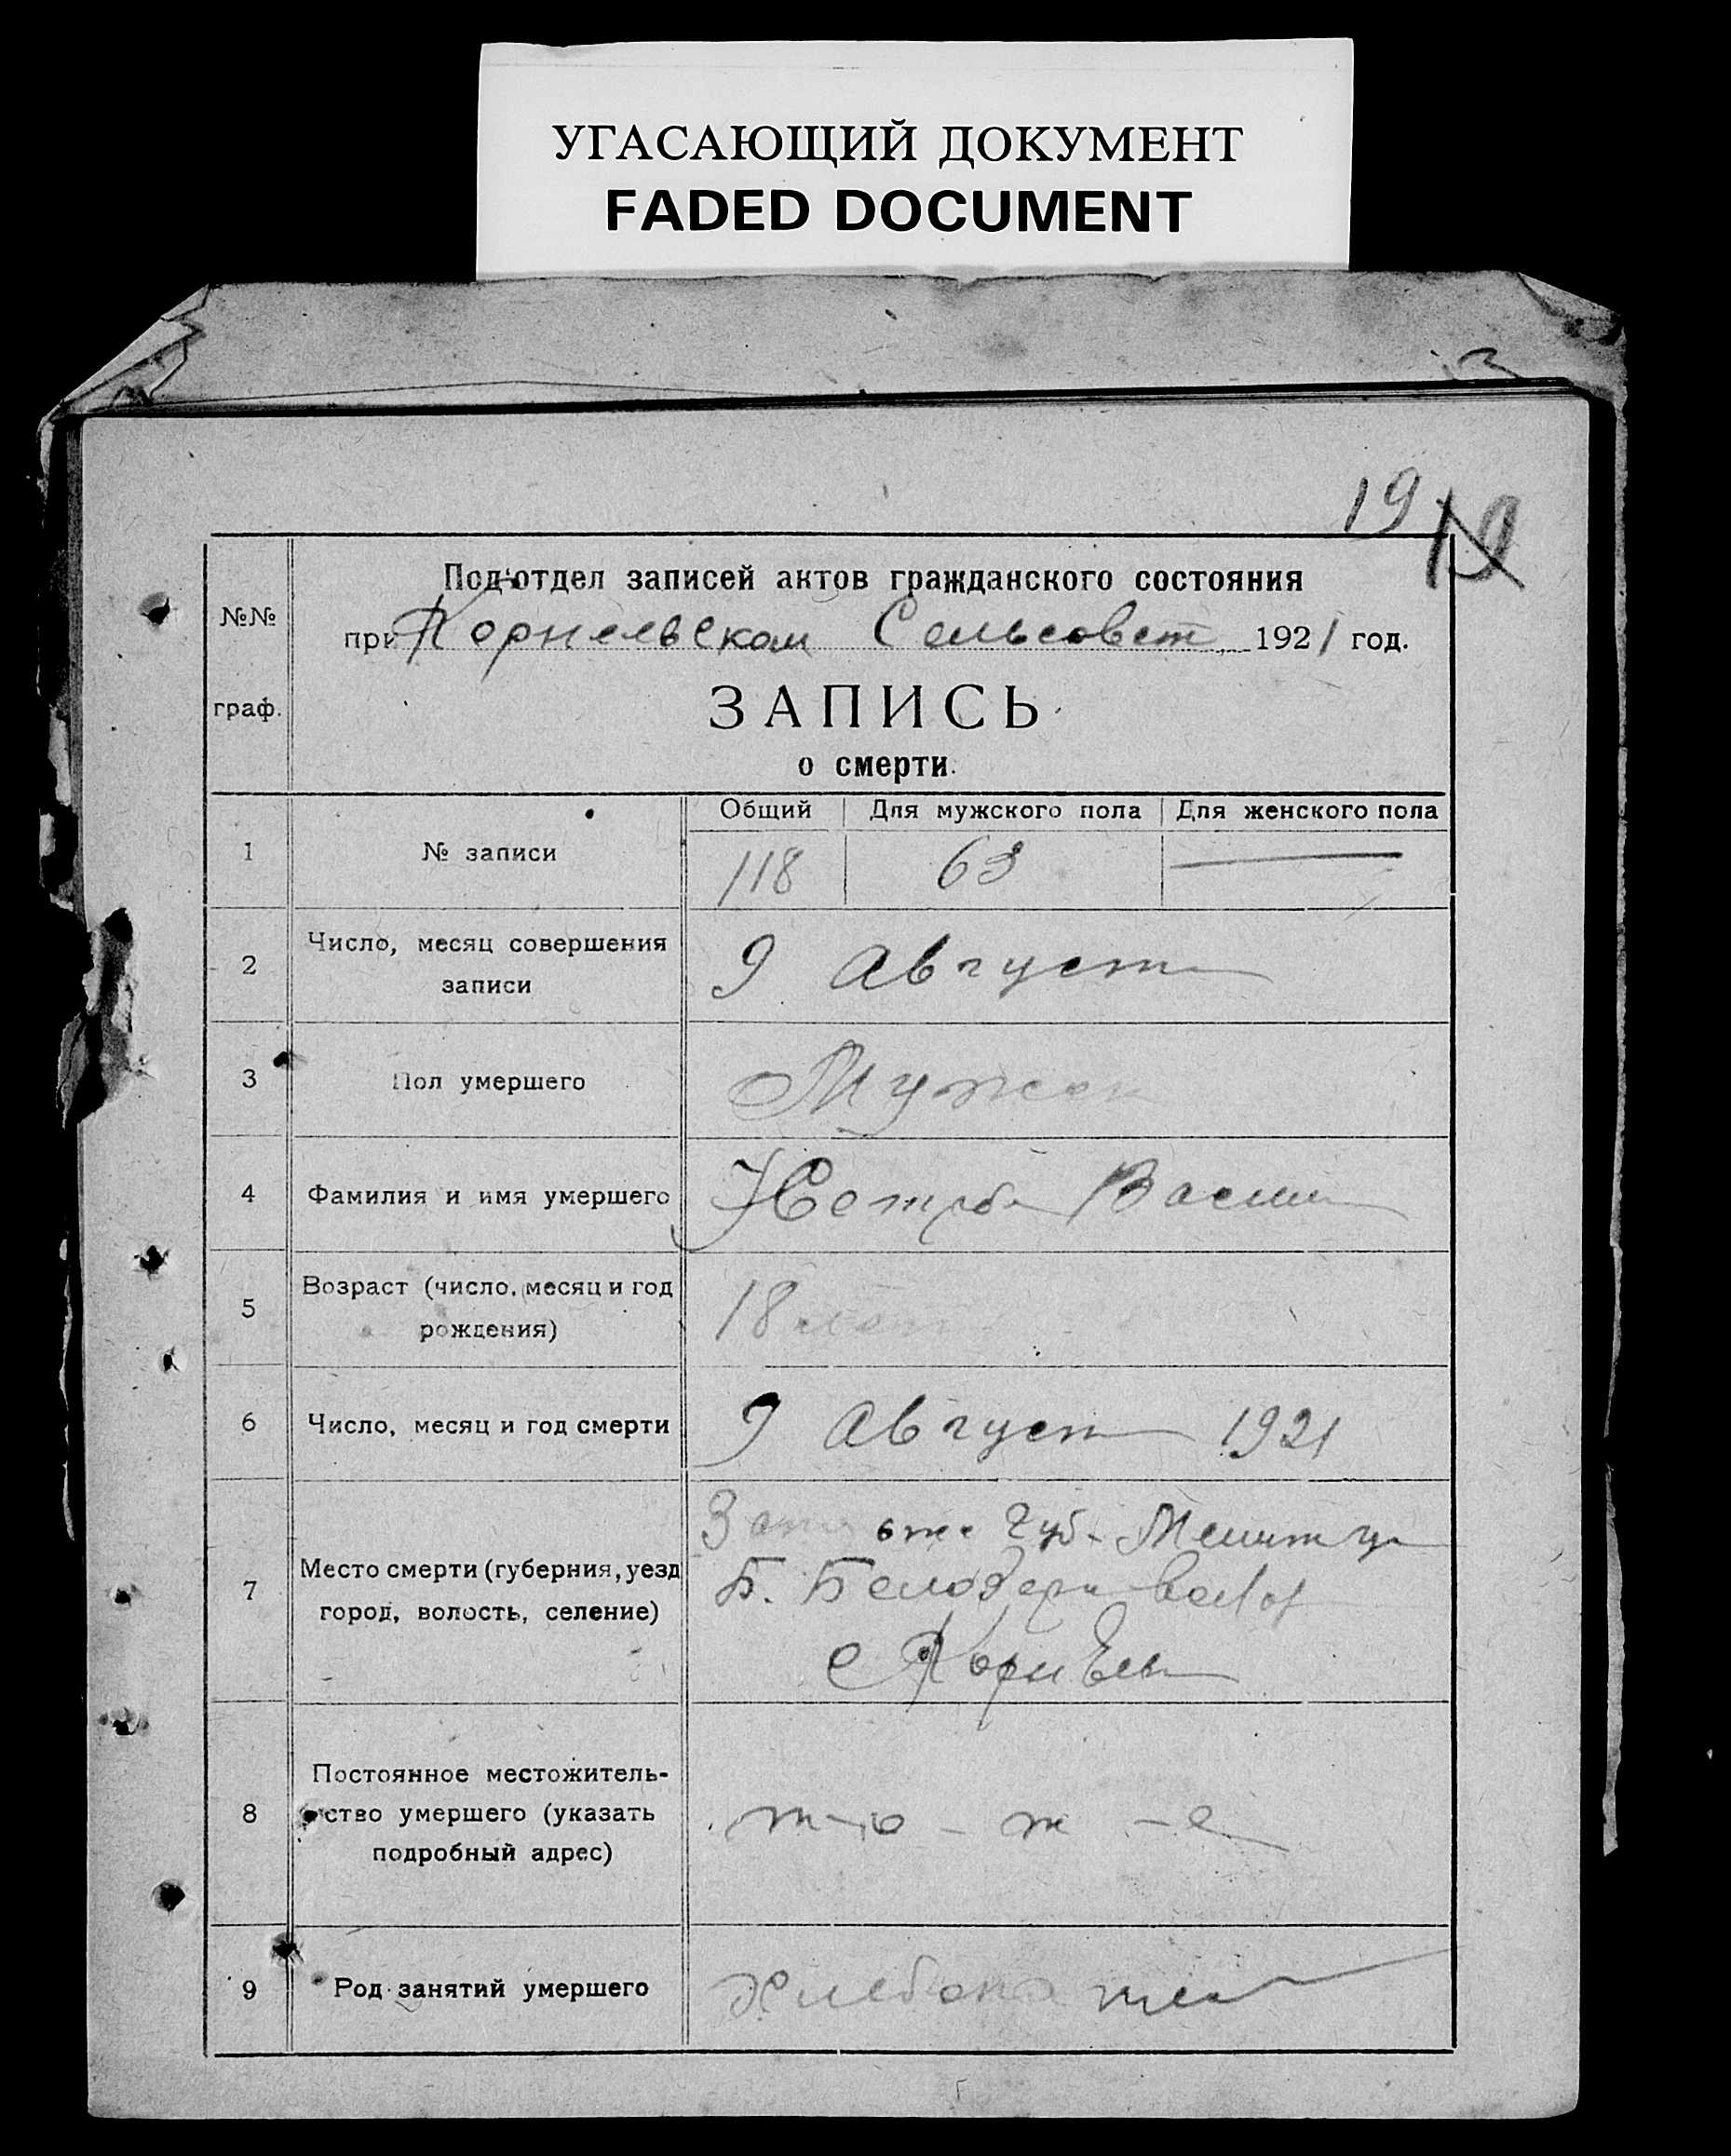 УГАСАЮЩИЙ ДОКУМЕНТ
FADED DOCUMENT
19
19
№№ граф.
Под'отдел записей актов гражданского состояния
при Корнеевском Сельсовет 1921 год.
ЗАПИСЬ
о смерти.
Общий Для мужского пола Для женского пола
1 № записи 118 63 —
2 Число, месяц совершения
записи
9 Август
3 Пол умершего Мужск
4 Фамилия и имя умершего Васили
5 Возраст (число, месяц и год
рождения)
18 лет
6 Число, месяц и год смерти 9 Август 1921
7 Место смерти (губерния, уезд
город, волость, селение)
губ. Мелит у
Б. Белозерк
с Корнеев
8 Постоянное местожитель-
ство умершего (указать
подробный адрес)
т-о - ж - е
9 Род занятий умершего Хлебопаше